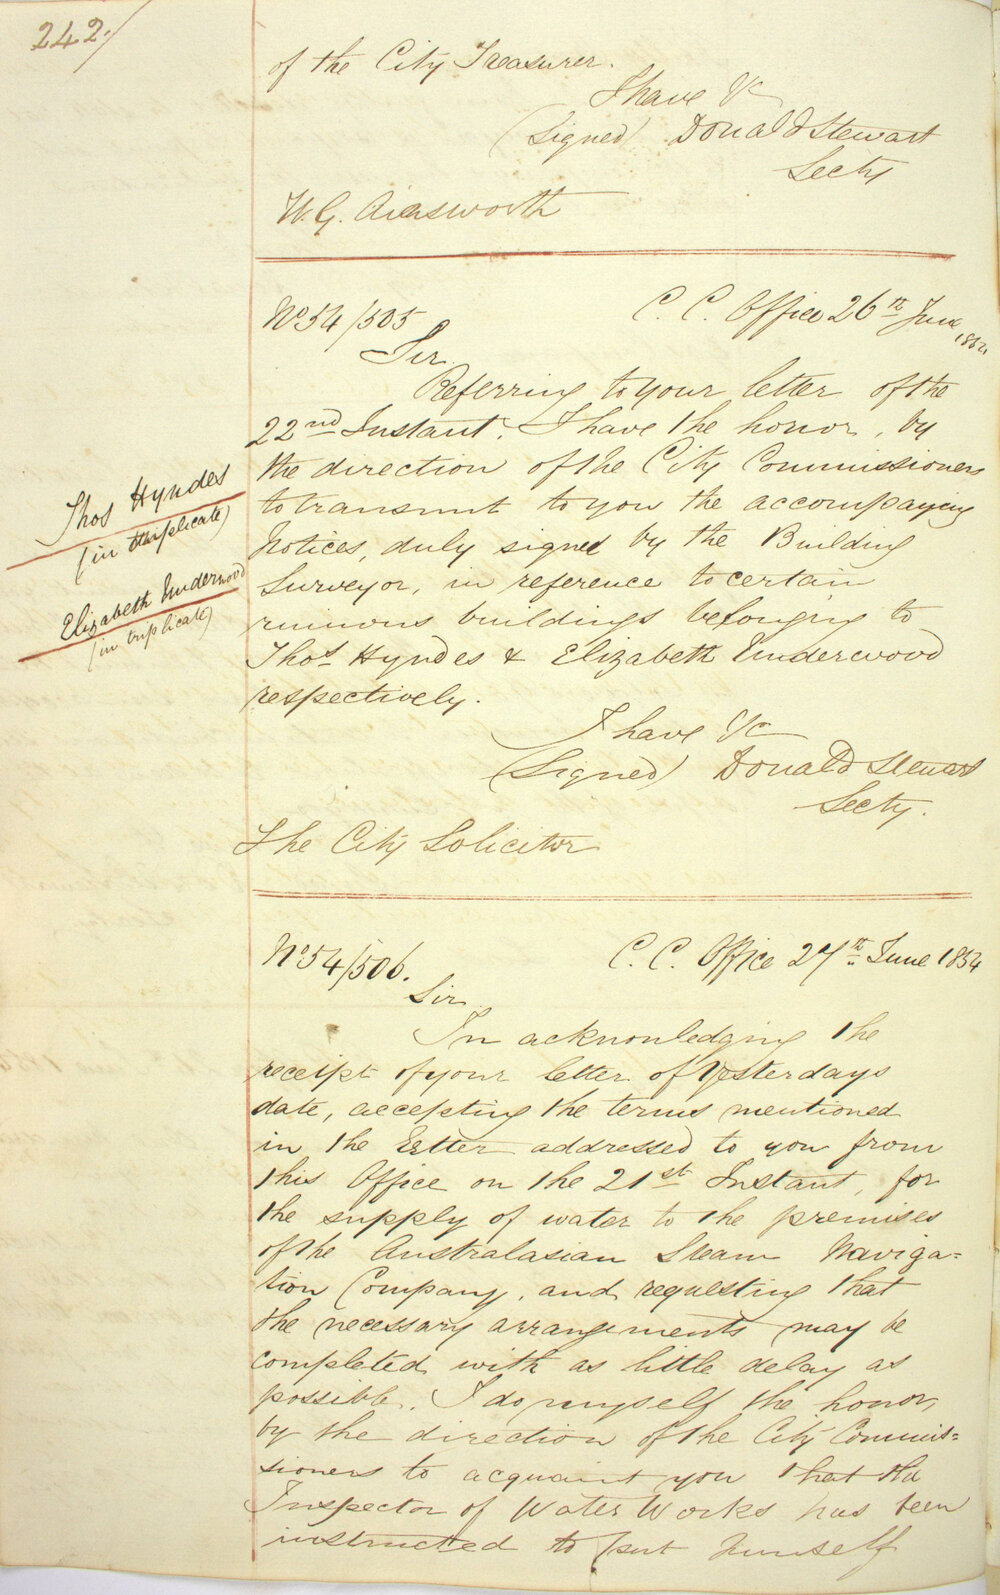 242.
of the City Treasurer.
I have &c
(Signed) Donald Stewart
Secty
W. G. Ainsworth
No 54/505
C. C. Office 26th June
1854
Sir
Referring to your letter of the
22nd Instant, I have the honor, by
the direction of the City Commissioners
to transmit to you the accompaying
Notices, duly signed by the Building
Surveyor, in reference to certain
ruinous buildings belonging to
Thos Hyndes & Elizabeth Underwood
respectively.
Thos Hyndes
(in triplicate)
Elizabeth Underwood
(in triplicate)
I have &c
(Signed) Donald Stewart
Secty.
The City Solicitor
No 54/506.
C. C. Office 27th June 1854
Sir
In acknowledging the
receipt of your letter of Yesterdays
date, accepting the terms mentioned
in the Letter addressed to you from
this Office on the 21st Instant, for
the supply of water to the premises
of the Australasian Steam Naviga=
tion Company, and requesting that
the necessary arrangements may be
completed with as little delay as
possible. I do myself the honor,
by the direction of the City Commis=
sioners to acquaint you that the
Inspector of Water Works has been
instructed to put himself